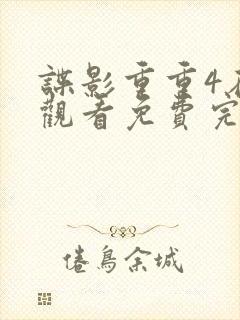 諜影重重4
觀看免費完
倦鳥余城